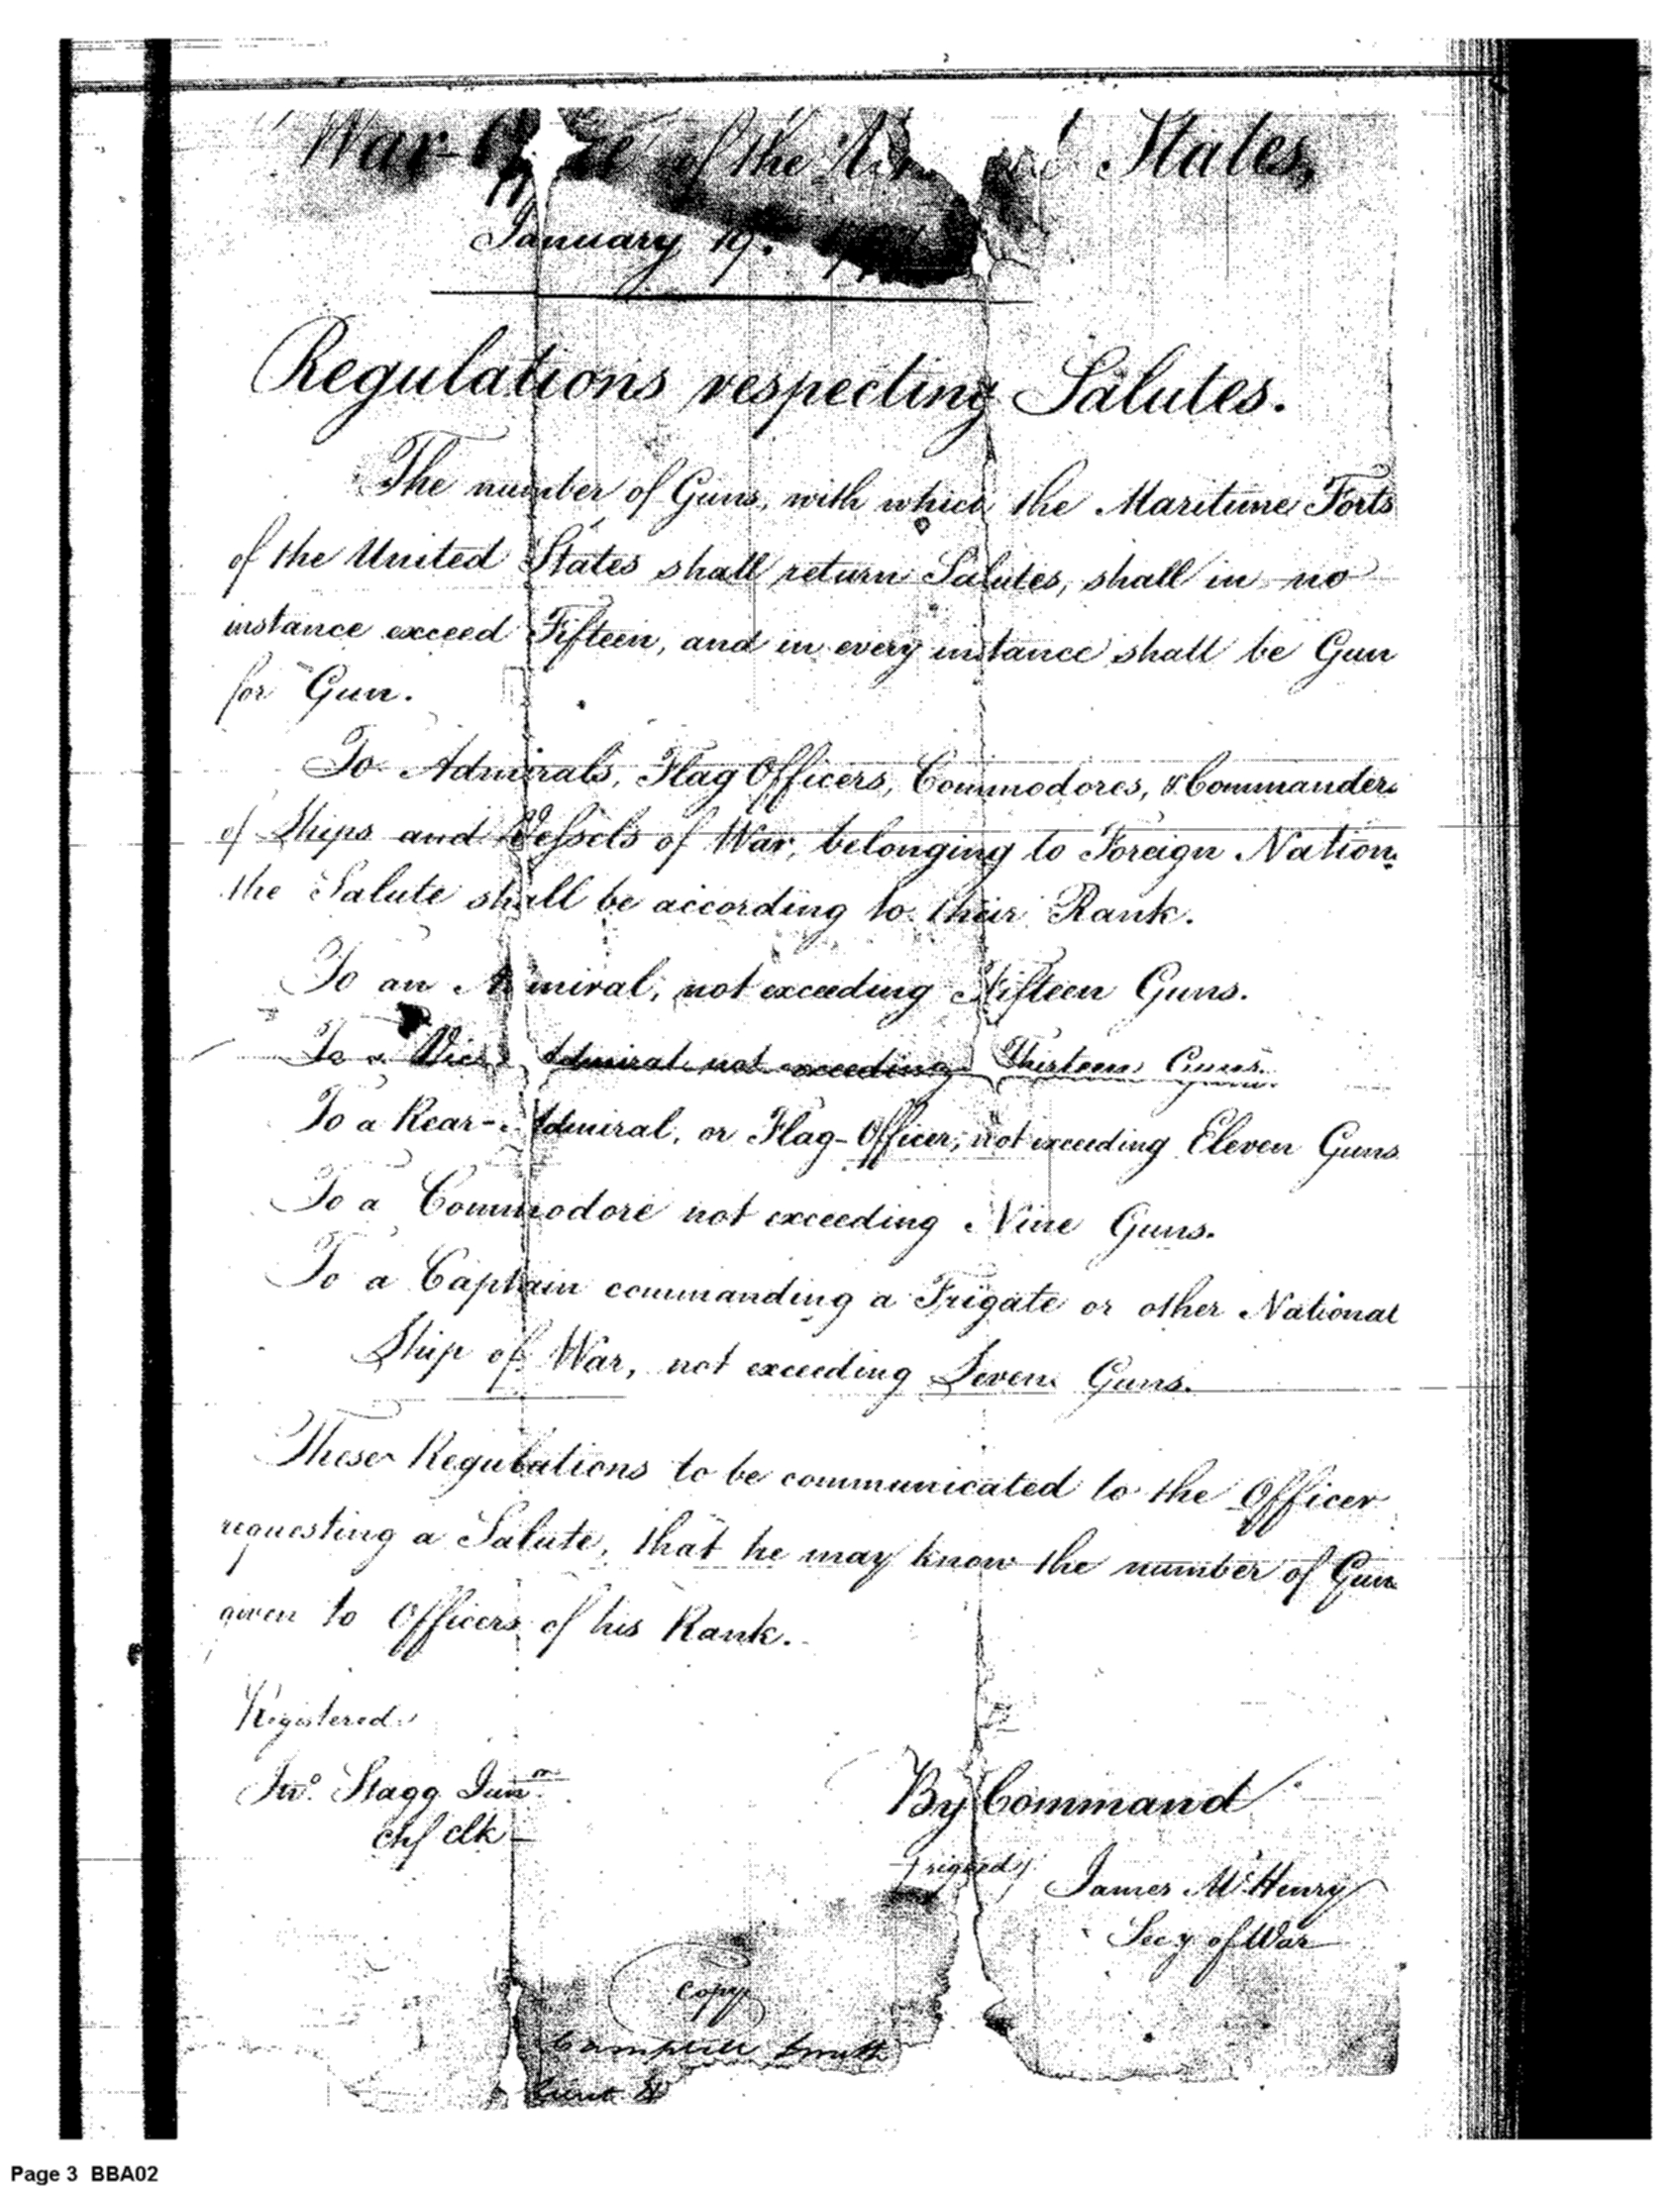 War Office of the United States,
January 19.
Regulations respecting Salutes.
The number of Guns, with which the Maritime Forts
of the United States shall return Salutes, shall in no
instance exceed Fifteen, and in every instance shall be Gun
for Gun.
To Admirals, Flag Officers, Commodores, & Commanders
of Ships and Vessels of War, belonging to Foreign Nations
the Salute shall be according to their Rank.
To an Admiral, not exceeding Fifteen Guns.
To a Vice Admiral not exceeding Thirteen Guns.
To a Rear-Admiral, or Flag-Officer, not exceeding Eleven Guns
To a Commodore not exceeding Nine Guns.
To a Captain commanding a Frigate or other National
Ship of War, not exceeding Seven Guns.
These Regulations to be communicated to the Officer
requesting a Salute, that he may know the number of Gun
given to Officers of his Rank.
Registered
Jno. Stagg Junr.
chf clk
By Command
signed
James McHenry
Secy of War
Copy
Campbell Smith
Page 3 BBA02